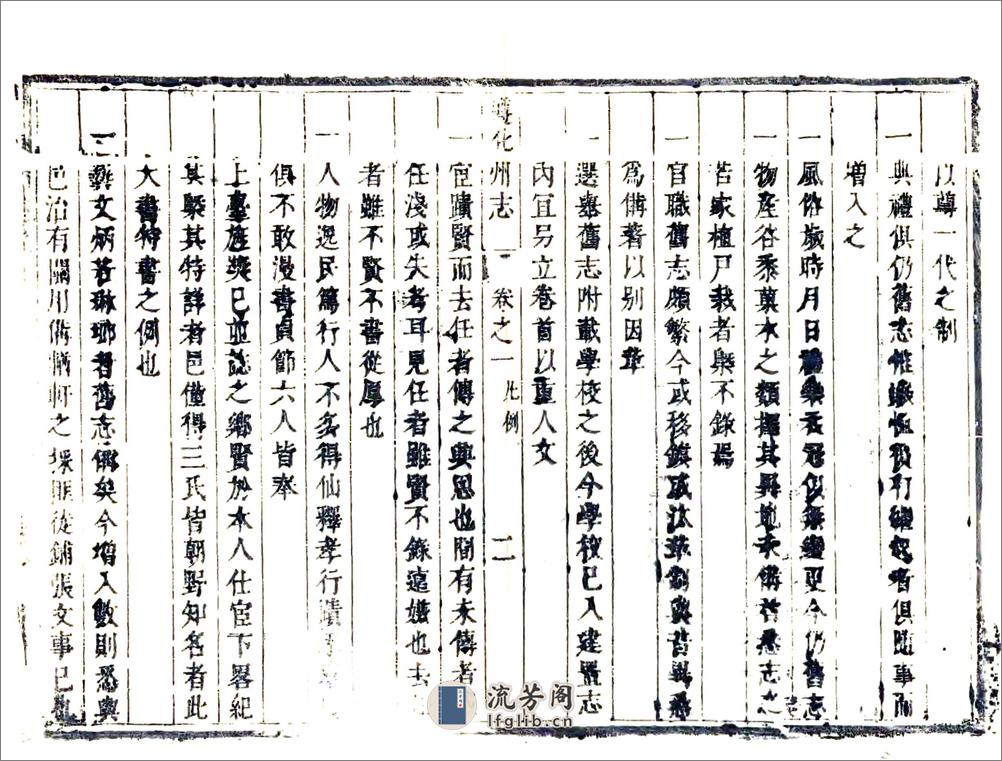 以尊一代之制
一典禮俱仍舊志惟 俱隨事而
增入之
一風俗歲時月日 衣冠似無變更今仍舊志
一物產谷黍菓木之類擇其異地未備者悉志之
若家植戶栽者槩不錄焉
一官職舊志頗繁今或移鎮或汰革劃與昔異悉
為備著以別因革
一選舉舊志附載學校之後今學校已入建置志
內宜另立卷首以重人文
一宦蹟賢而去任者傳之興思也間有未傳者
任淺或失考耳見任者雖賢不錄遠嫌也去
者雖不賢不書從厚也
一人物逸民篤行人不多得仙釋孝行蹟
俱不敢漫書貞節六人皆奉
上臺旌奬已並誌之鄉賢於本人仕宦下畧紀
其槩其特詳者邑僅得三氏皆朝野知名者此
大書特書之例也
一藝文炳若琳瑯者舊志備矣今增入數則悉與
邑治有關用備輶軒之採匪從鋪張文事已也
遵化州志 卷之一 凡例 二
流芳阁
lfglib.cn